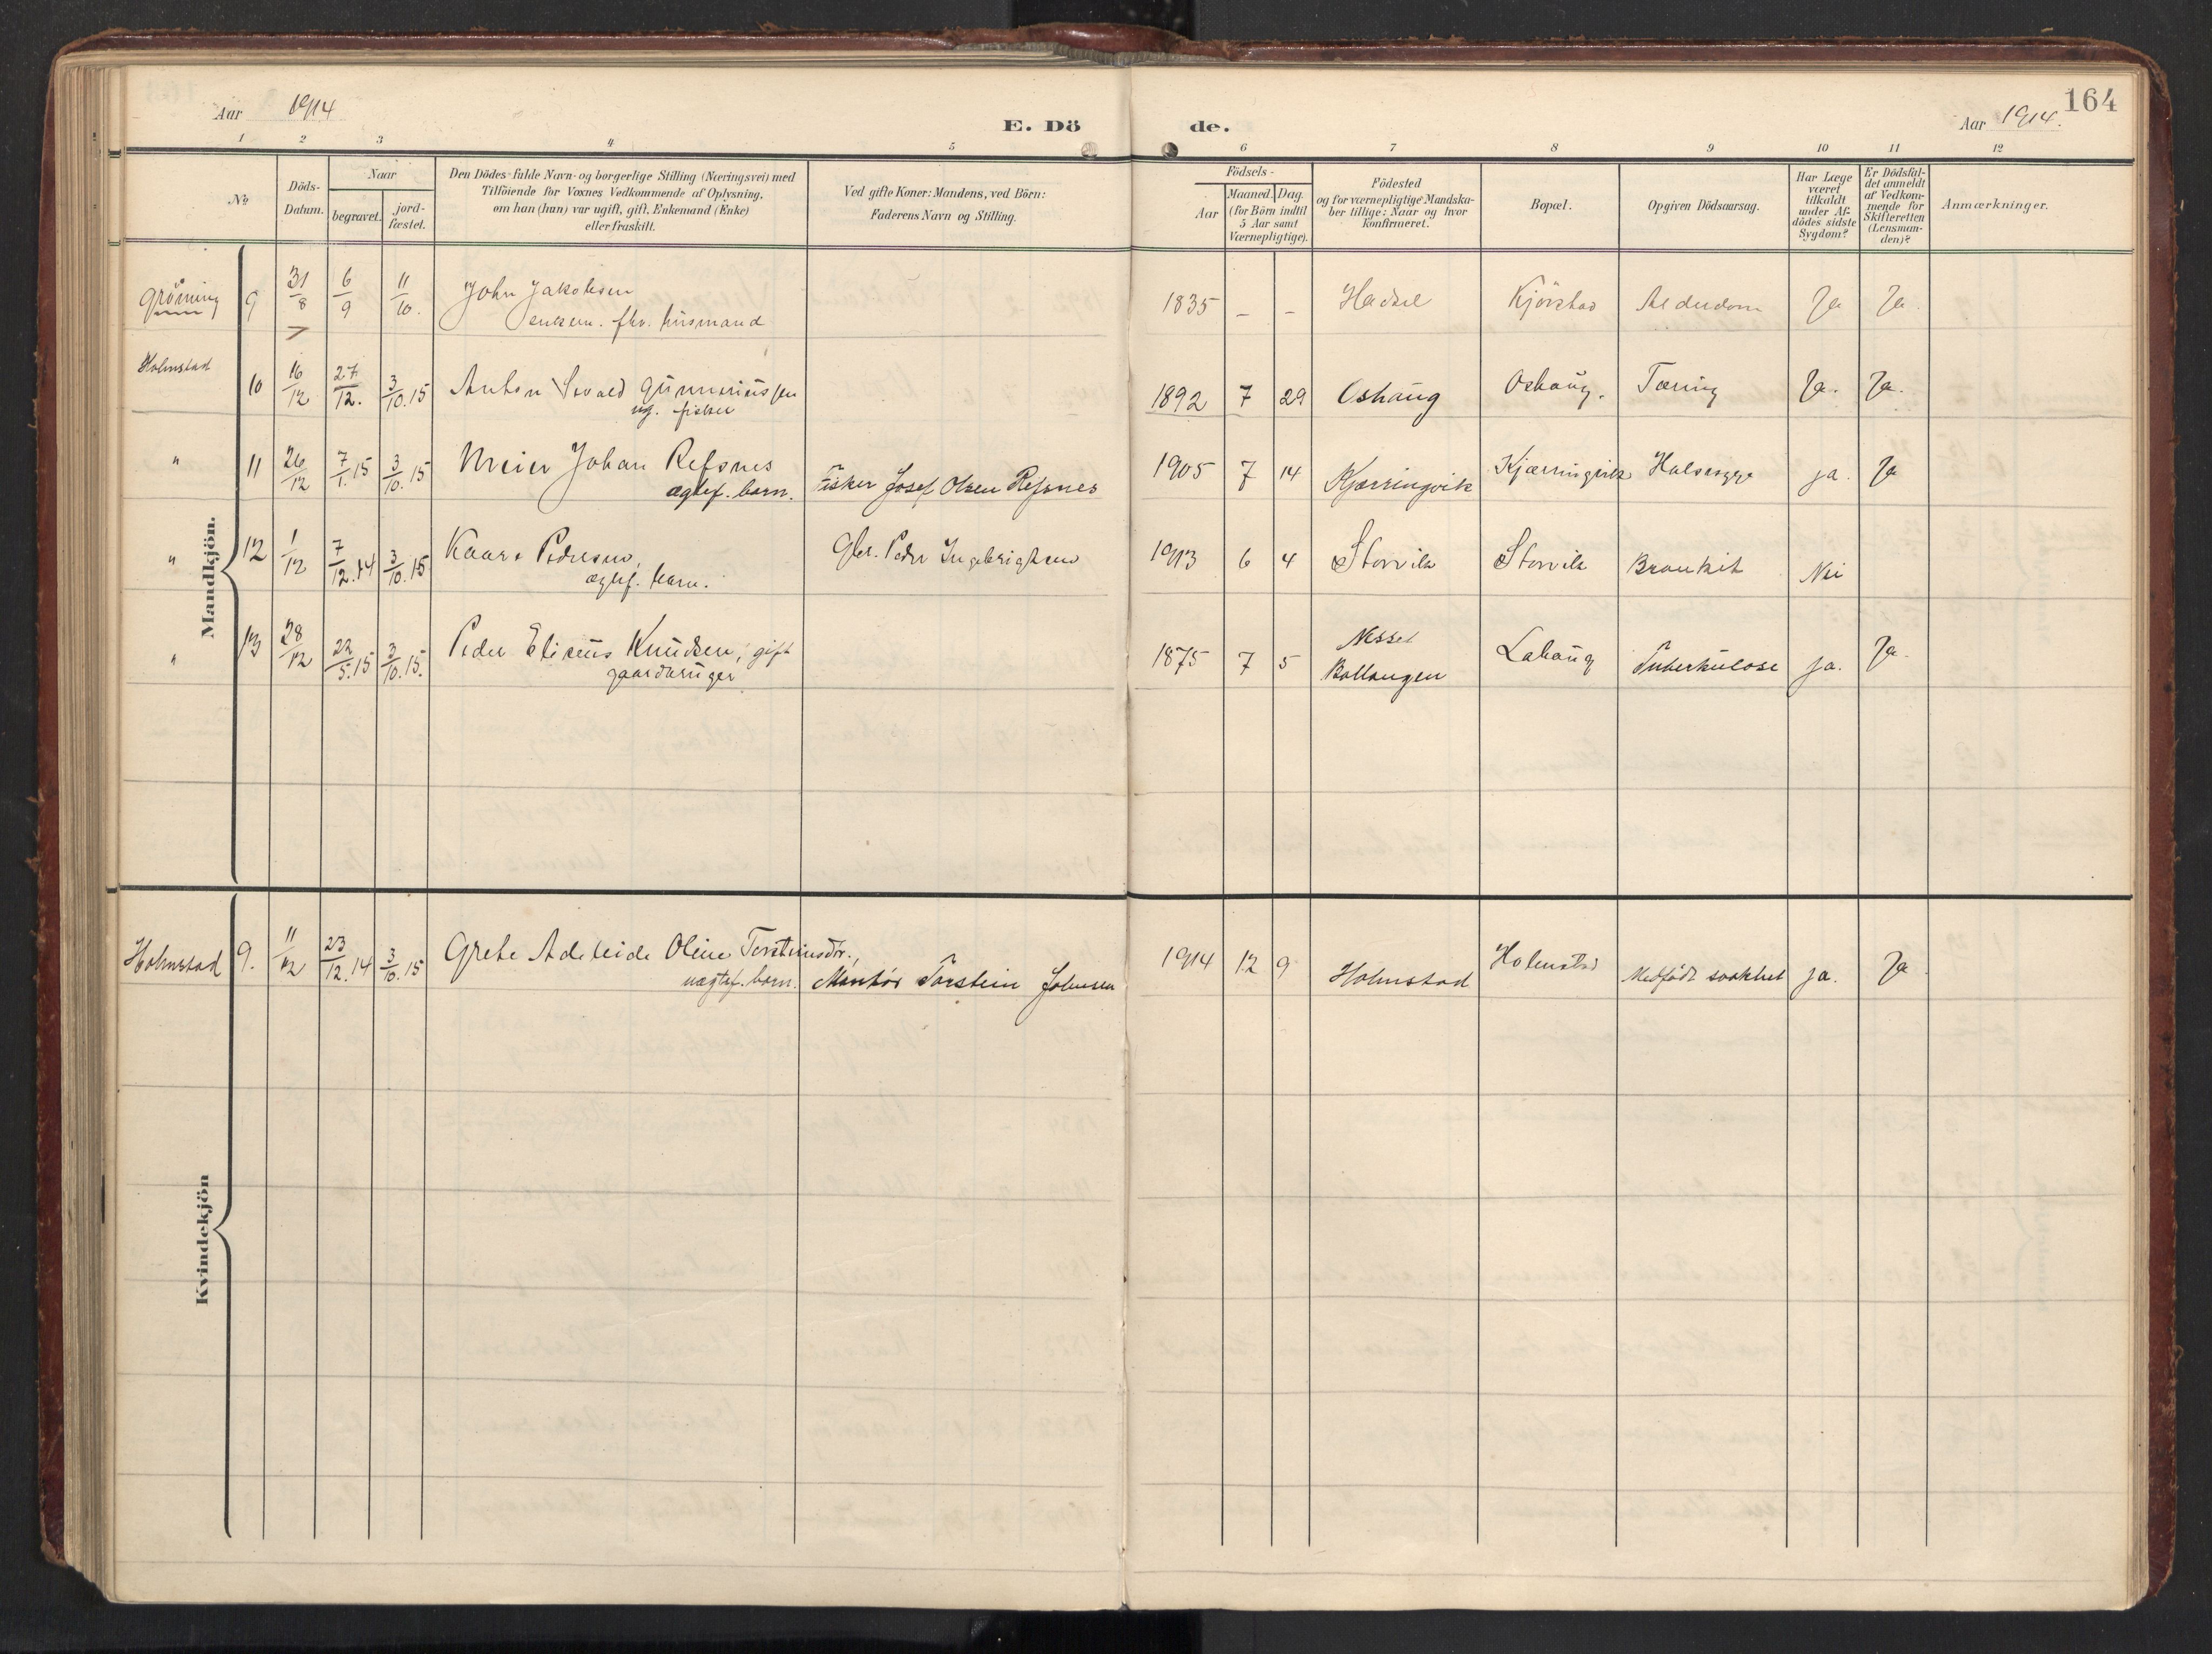 Aar 1914
E. Dö
de.
Aar 1914.
164
1 2 3 4 5 6 7 8 9 10 11 12
No
Döds-
Datum.
Naar
begravet.
jord-
fæstet.
Den Dödes fulde Navn og borgerlige Stilling (Næringsvei) med
Tilföiende for Voxnes Vedkommende af Oplysning,
om han (hun) var ugift, gift, Enkemand (Enke)
eller fraskilt.
Ved gifte Koner: Mandens, ved Börn:
Faderens Navn og Stilling.
Födsels-
Aar
Maaned. Dag.
(for Börn indtil
5 Aar samt
Værnepligtige).
Födested
og for værnepligtige Mandska-
ber tillige: Naar og hvor
konfirmeret.
Bopæl.
Opgiven Dödsaarsag.
Har Læge
været
tilkaldt
under Af-
dödes sidste
Sygdom?
Er Dödsfal-
det anmeldt
af Vedkom-
mende for
Skifteretten
(Lensman-
den)?
Anmærkninger.
Mandkjön.
Grönning 9 31/8 6/9 11/10. John Jakobsen 1835 – – Hadsel Kjörstad Alderdom Ja Ja.
enkem. fhv. husmand
Holmstad 10 16/12 27/12. 3/10.15 Anton Sevald Gunnariussen 1892 7 29 Oshaug Oshaug. Tæring Ja. Ja.
ug. fisker
" 11 26/12 7/1.15 3/10.15 Meier Johan Refsnes 1905 7 14 Kjærringvik Kjærringvik Halssyge ja. Ja
ægtef. barn. Fisker Josef Olsen Refsnes
" 12 1/12 7/12.14 3/10.15 Kaare Pedersen, Gbr. Peder Ingebrigtsen 1913 6 4 Storvik Storvik Bronkit Nei
ægtef. barn.
" 13 28/12 22/5.15 3/10.15. Peder Eliseus Knudsen, gift 1875 7 5 Nesset Lahaug Tuberkulose ja. Ja.
gaardbruger Ballangen
Kvindekjön
Holmstad 9. 11/12 23/12.14 3/10.15 Grete Adeleide Oline Torsteinsdtr., 1914 12 9 Holmstad Holmstad Medfødt svakhet ja. Ja
uægtef. barn. Montør Torstein Johnsen